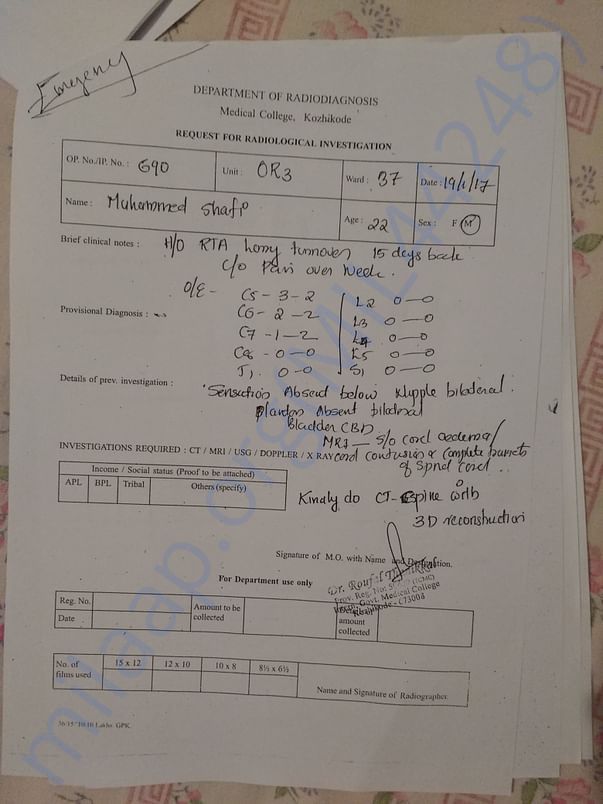 Emergency
DEPARTMENT OF RADIODIAGNOSIS
Medical College, Kozhikode
REQUEST FOR RADIOLOGICAL INVESTIGATION
OP. No./IP. No. : 690 Unit : OR3 Ward : 37 Date : 19/1/17
Name : Muhammed Shafi Age : 22 Sex : F M
Brief clinical notes : H/O RTA lorry turnover 15 days back
C/o Pain over Neck.
O/E - C5 - 3 - 2 L2 0 - 0
Provisional Diagnosis : C6 - 2 - 2 L3 0 - 0
C7 - 1 - 2 L4 0 - 0
C8 - 0 - 0 L5 0 - 0
T1 0 - 0 S1 0 - 0
Details of prev. investigation :
Sensation Absent below Nipple bilateral.
Plantar Absent bilateral
Bladder CBD
MRI — S/o cord oedema/
INVESTIGATIONS REQUIRED : CT / MRI / USG / DOPPLER / X RAY cord contusion & complete
of Spinal cord.
Income / Social status (Proof to be attached)
APL BPL Tribal Others (specify)
Kindly do CT - C spine with
3D reconstruction
Signature of M.O. with Name and Designation.
For Department use only
Dr.
Govt. Medical College
Kozhikode - 673008
Reg. No. Amount to be collected amount collected
Date
No. of films used 15 x 12 12 x 10 10 x 8 8½ x 6½
Name and Signature of Radiographer.
milaap.org